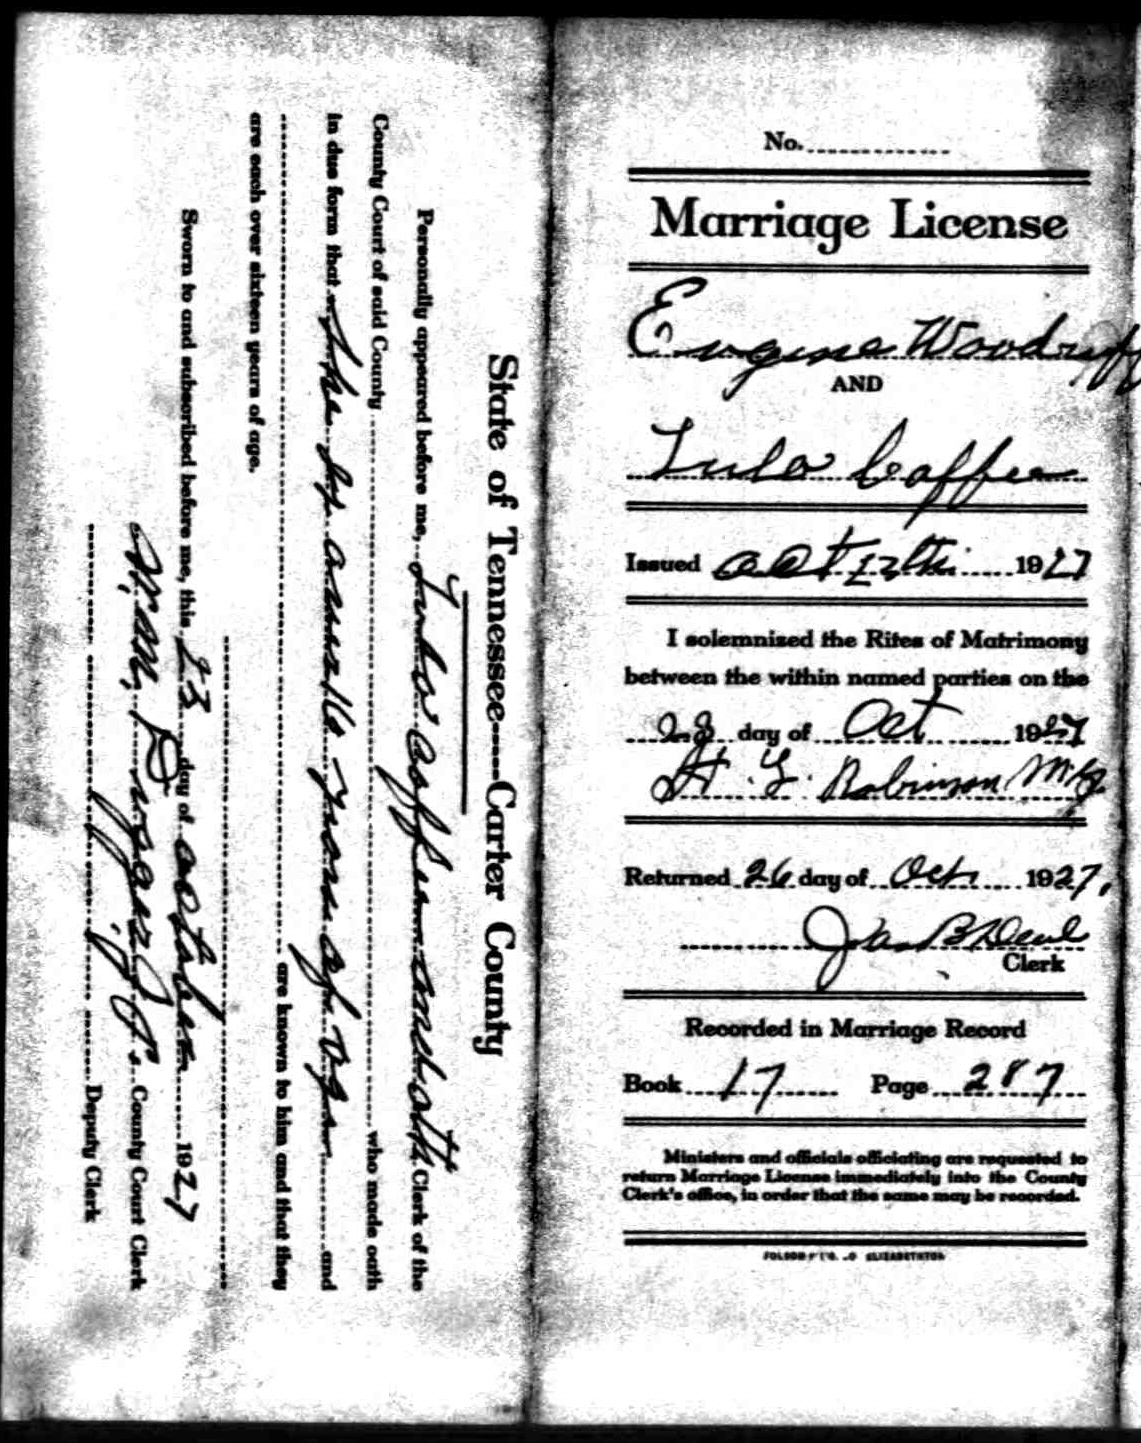 State of Tennessee----Carter County
Personally appeared before me, Lula Caffee Clerk of the
County Court of said County who made oath
in due form that she is years of age and
are known to him and that they
are each over sixteen years of age.
Sworn to and subscribed before me, this 23 day of October 1927
J. P. County Court Clerk
Deputy Clerk
No.
Marriage License
Eugene Woodruff
AND
Lula Caffee
Issued Oct 1927
I solemnized the Rites of Matrimony
between the within named parties on the
23 day of Oct 1927
Robinson
Returned 26 day of Oct 1927.
Clerk
Recorded in Marriage Record
Book 17 Page 287
Ministers and officials officiating are requested to
return Marriage License immediately into the County
Clerk's office, in order that the same may be recorded.
ELIZABETHTON